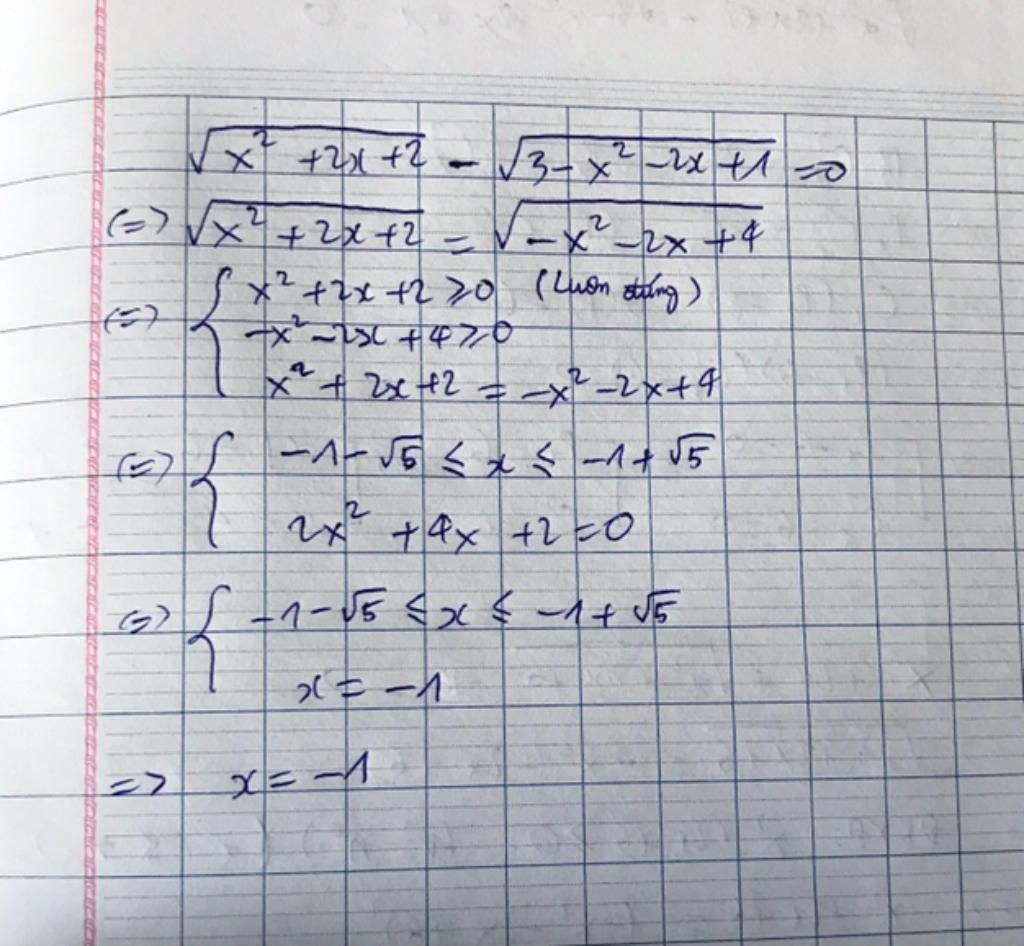 √(x² + 2x + 2) - √(3 - x² - 2x + 1) = 0
(=) √(x² + 2x + 2) = √(-x² - 2x + 4)
(=) { x² + 2x + 2 ⩾ 0 (Luôn đúng)
-x² - 2x + 4 ⩾ 0
x² + 2x + 2 = -x² - 2x + 4
(=) { -1 - √5 ≤ x ≤ -1 + √5
2x² + 4x + 2 = 0
(=) { -1 - √5 ≤ x ≤ -1 + √5
x = -1
=> x = -1